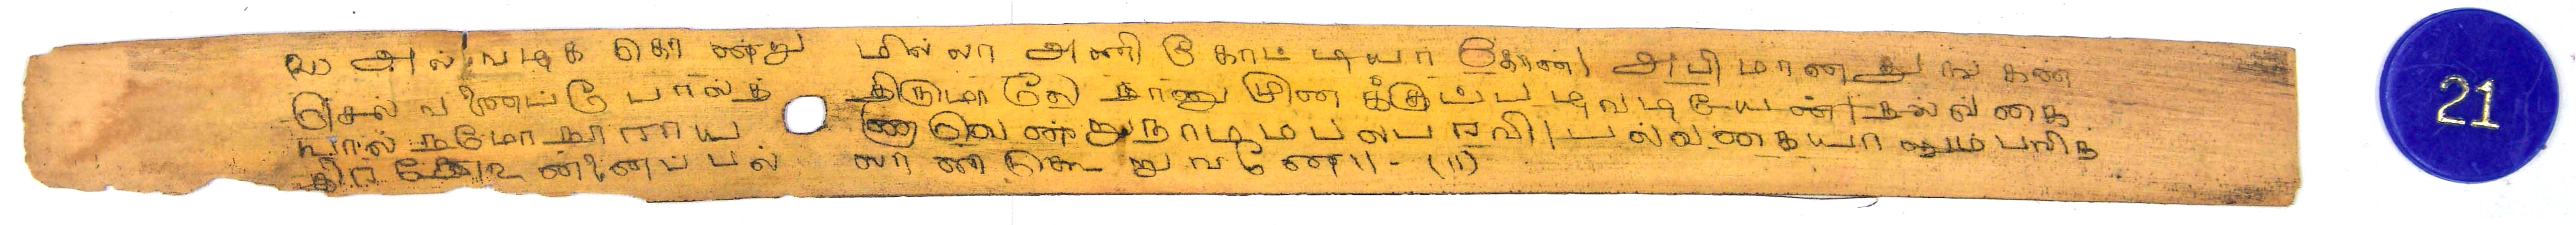 ௰ அல்வழக கொன்று மில்லா அணி கோட்டியர் கோன்| அபிமானதுங்கன்
செல்வனைப்போலத் திருமாலே நானுமுனக்குப்பழவடியேன்|நல்வகை
யால் நமோநாராய ணாவென்றுநாமம்பலபரவி|பல்வகையாலும்பவித்
திரனேஉன்னைப்பல் லாண்டுகூறுவனே||-(௰௧)
21